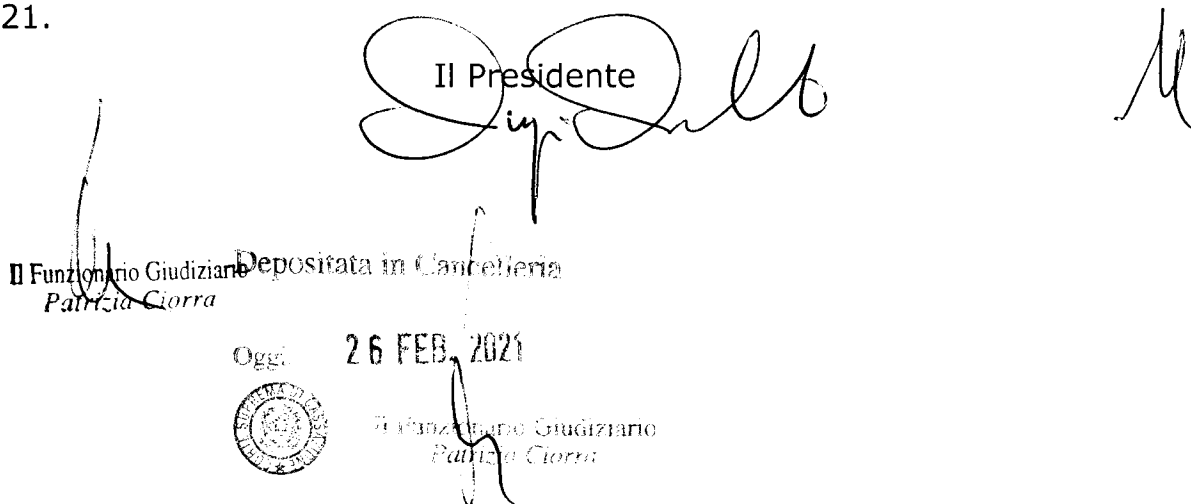 21.
Il Presidente
Il Funzionario Giudiziario
Patrizia Ciorra
Depositata in Cancelleria
Oggi, 26 FEB. 2021
CORTE SUPREMA DI CASSAZIONE
Il Funzionario Giudiziario
Patrizia Ciorra